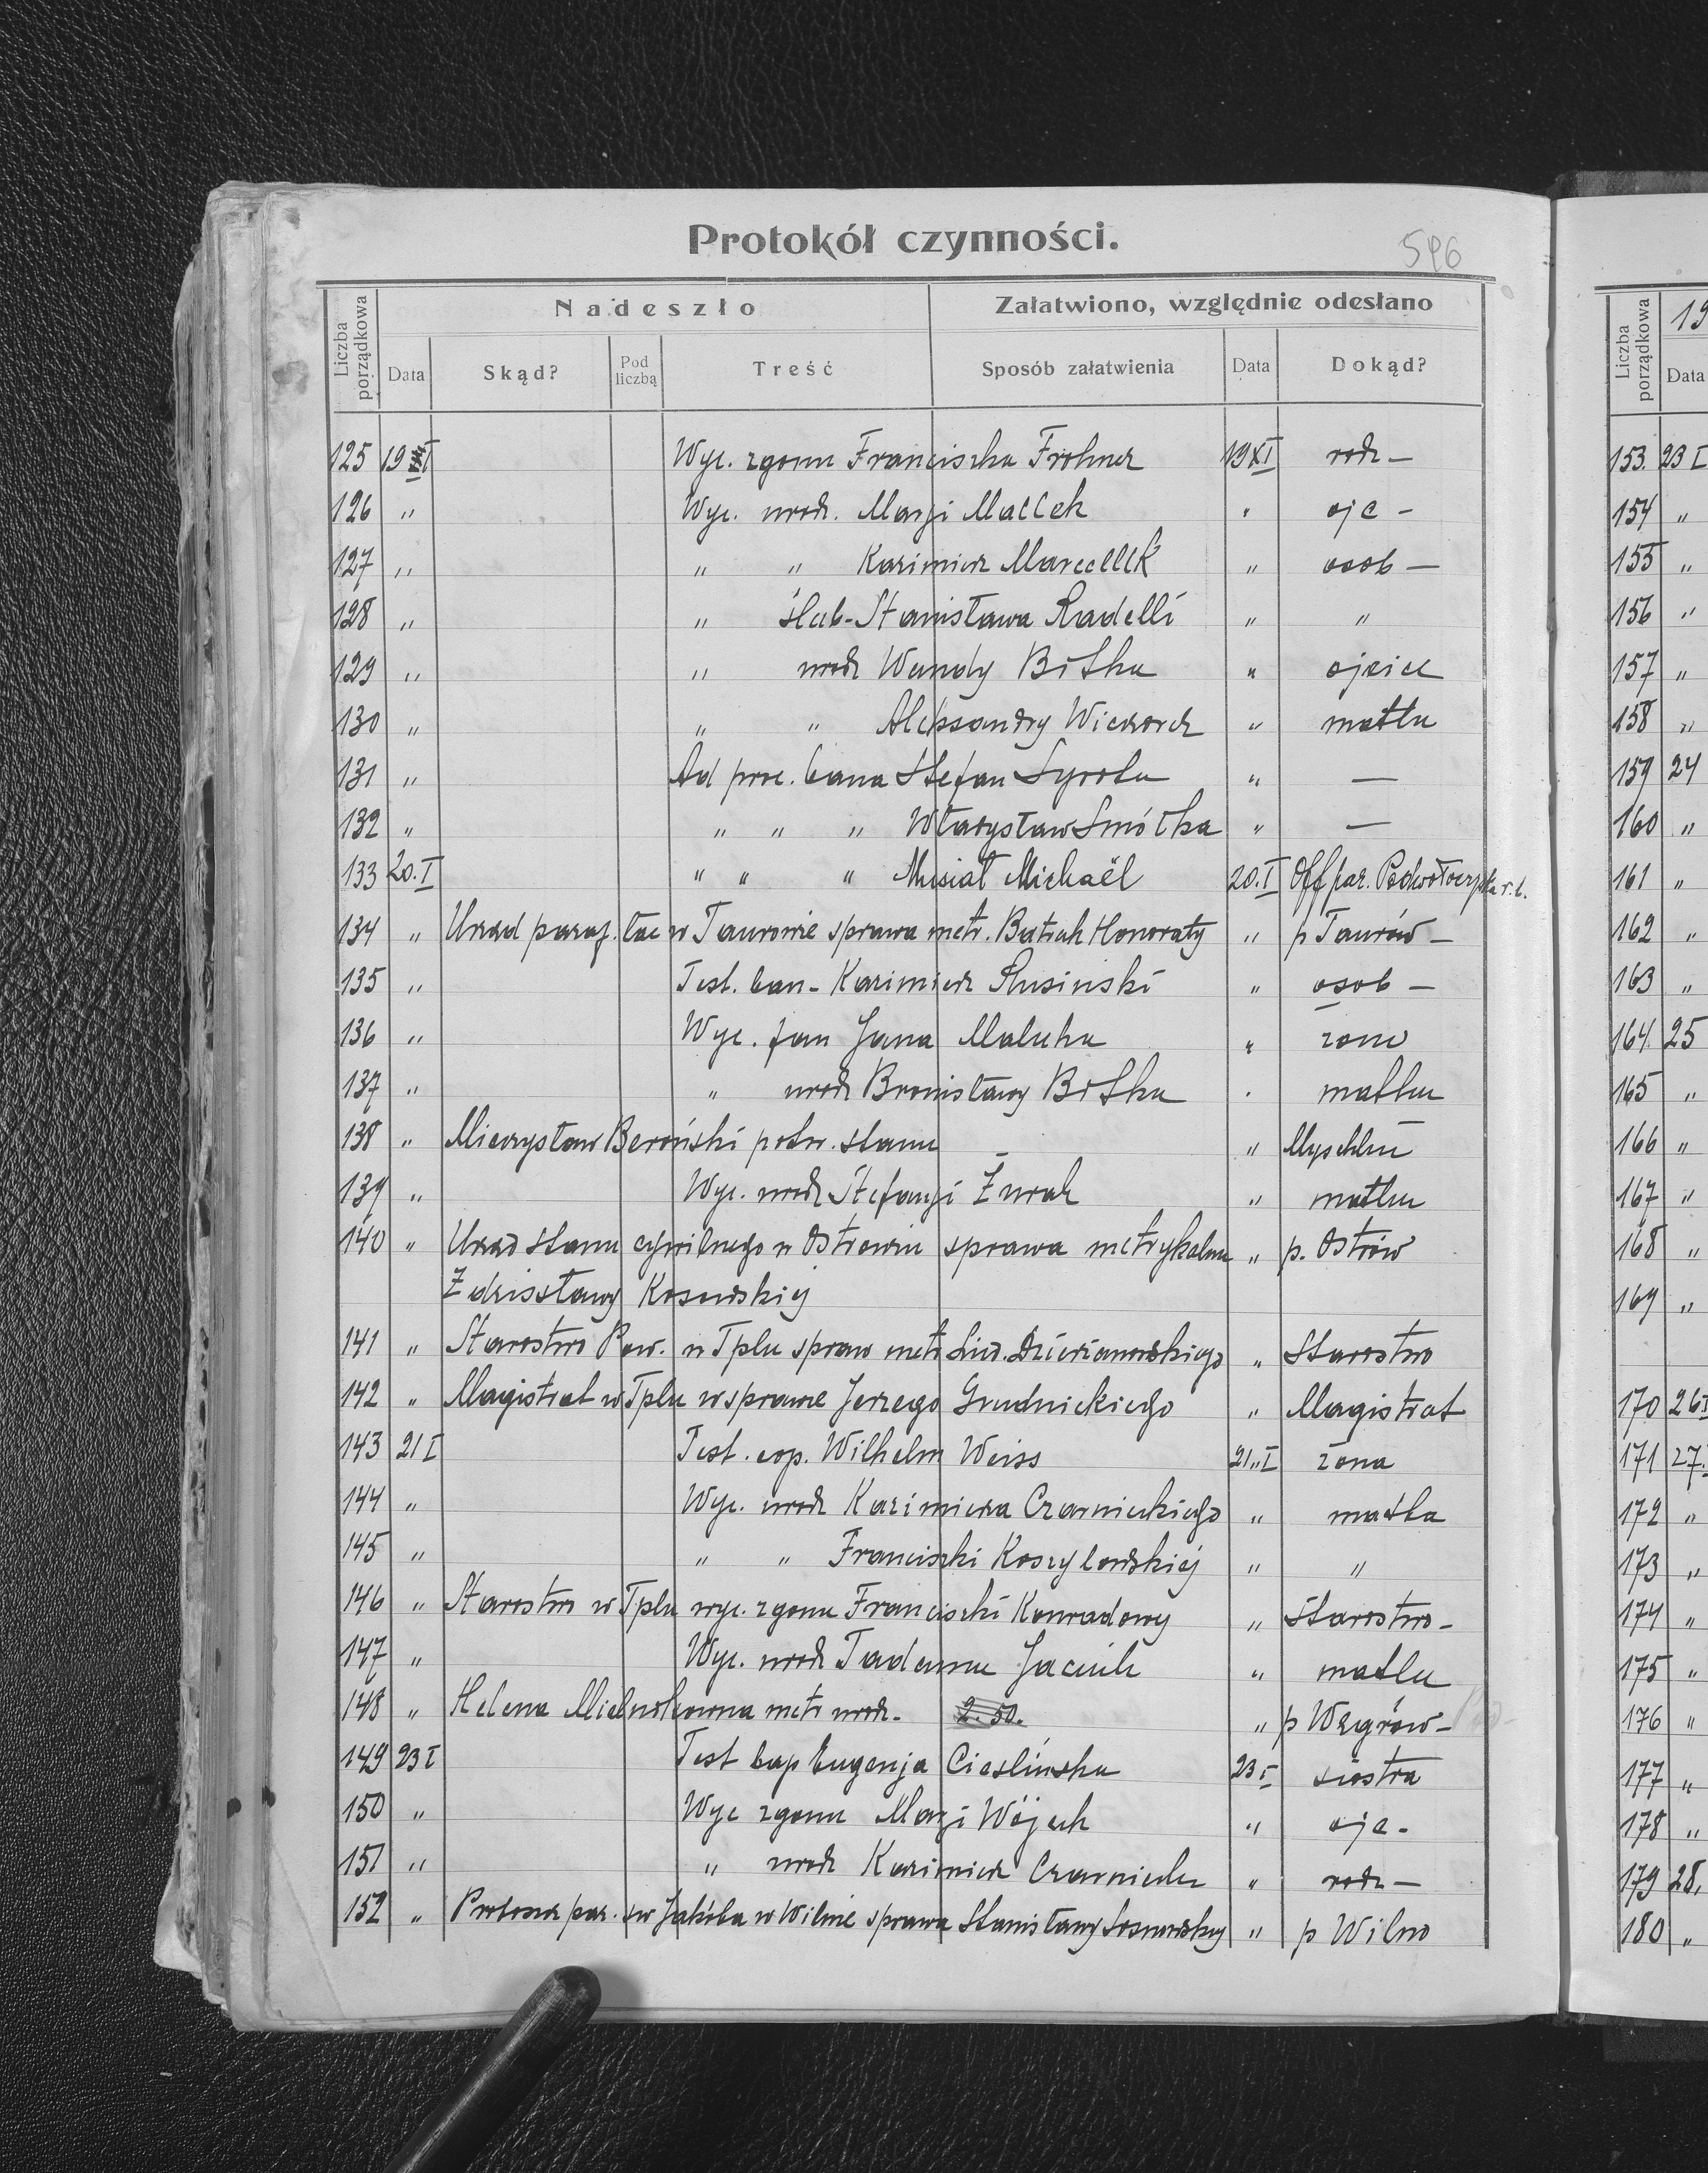 Protokół czynności.
596
Liczba porządkowa
Nadeszło
Załatwiono, względnie odesłano
Data Skąd? Pod liczbą Treść Sposób załatwienia Data Dokąd?
125 19 I Wyc. zgonu Franciszka Frohner 19 XI rodz —
126 " Wyc. urodz. Marji Maccek " ojc -
127 " " " Kazimierz Marcellek " osob —
128 " " ślub - Stanisława Radelli " "
129 " " urodz Wandy Bitka " ojciec
130 " " " Aleksandry Wieczorek " matka
131 " Ad proc. bana Stefan Syrota " —
132 " " " " Władysław Smótka " —
133 20. I " " " Musiał Michaël 20. I Off par. Podwołoczyska r. l.
134 " Urząd paraf. łac w Taurowie sprawa metr. Butrak Honoraty " p Taurów —
135 " Test. ban - Kazimierz Rusinski " osob —
136 " Wyc. fam Jana Maluha " żona
137 " " urodz Bronisławy Bitka " matka
138 " Mieczysław Beroński potw. stanu — "
139 " Wyc. urodz Stefanji Żurak " matka
140 " Urząd stanu cywilnego w Ostrowiu sprawa metrykalna " p. Ostrów
Zdzisławy Kosowskiej
141 " Starostwo Pow. w Tplu spraw metr Lud. Dzierżanowskiego " Starostwo
142 " Magistrat w Tplu w sprawie Jerzego Grudnickiego " Magistrat
143 21 I Test. cop. Wilhelm Weiss 21. I żona
144 " Wyc. urodz Kazimierza Czarnieckiego " matka
145 " " " Franciszki Koszylowskiej " "
146 " Starostwo w Tplu wyc. zgonu Franciszki Konradowy " Starostwo -
147 " Wyc. urodz Tadeusza Jaciuk " matka
148 " Helena metr urodz. - 2.50. " p Węgrów —
149 23 I Test bap Eugenja Cieslińska 23 I siostra
150 " Wyc zgonu Marji Wójcik " ojc -
151 " " urodz Kazimierz Czarniecki " rodz —
152 " Proboszcz par. św Jakóba w Wilnie sprawa Stanisławy Sosnowskiej " p Wilno
Liczba porządkowa
19
Data
153. 23 I
154 "
155 "
156 "
157 "
158 "
159 24
160 "
161 "
162 "
163 "
164. 25
165 "
166 "
167 "
168 "
169 "
170 26 I
171 27.
172 "
173 "
174 "
175 "
176 "
177 "
178 "
179 28.
180 "